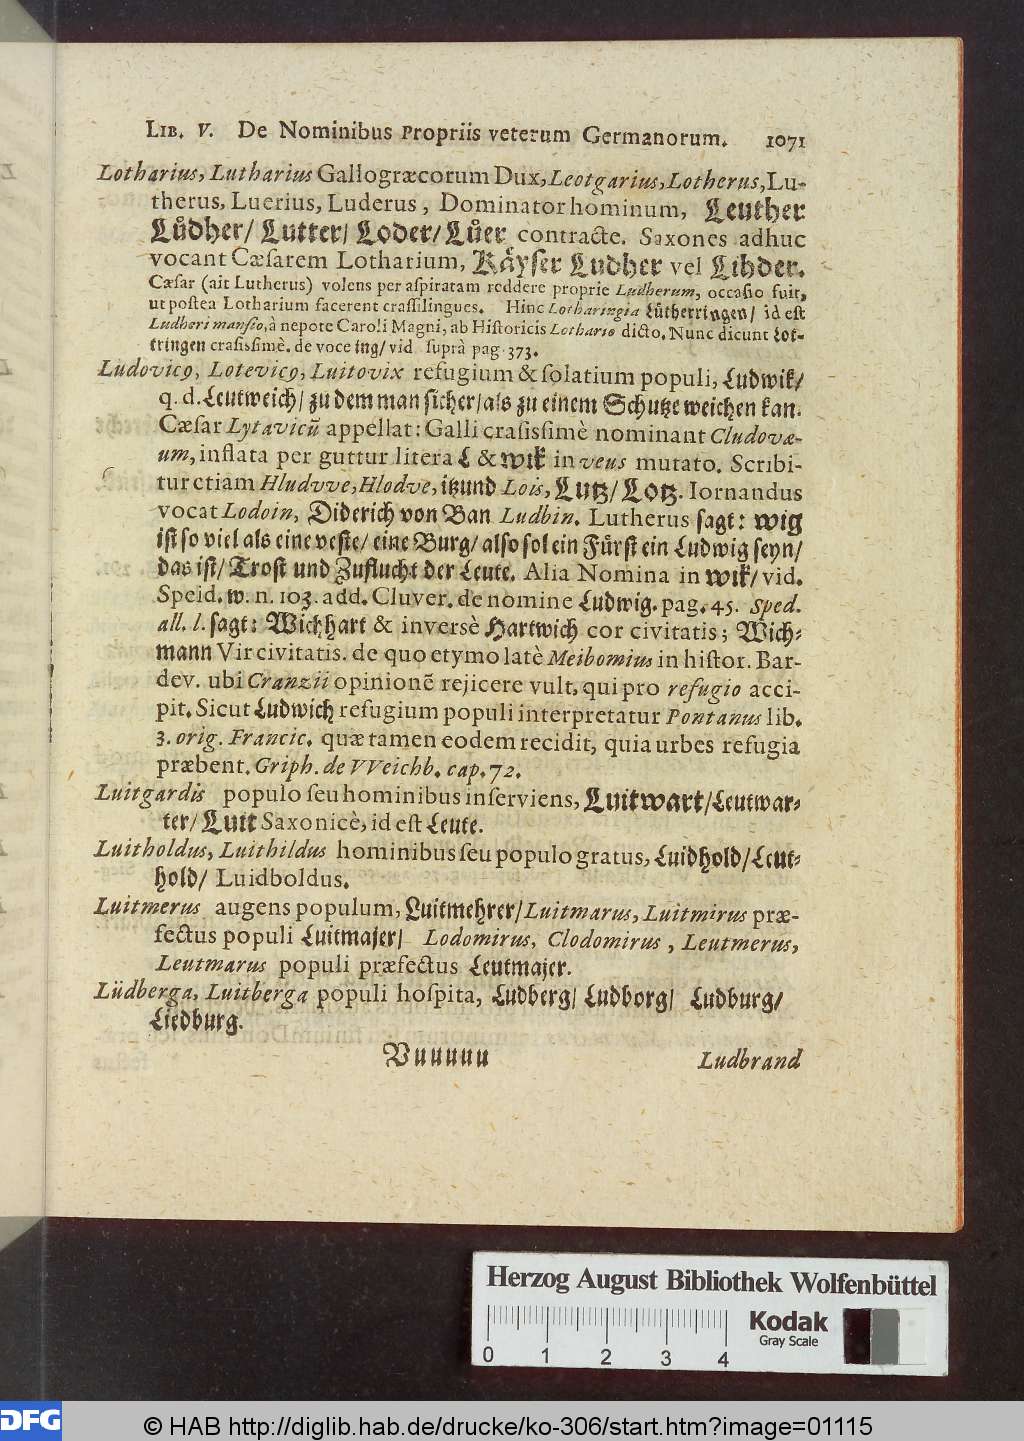 LIB. V. De Nominibus Propriis veterum Germanorum. 1071
Lotharius, Lutharius Gallogræcorum Dux, Leotgarius, Lotherus, Lu-
therus, Luerius, Luderus, Dominator hominum, Leuther
Lůdher/ Lutter/ Loder/ Lůer contracte. Saxones adhuc
vocant Cæsarem Lotharium, Kåyser Ludher vel Lihder.
Cæsar (ait Lutherus) volens per aſpiratam reddere proprie Ludherum, occaſio fuit,
ut poſtea Lotharium facerent craſſilingues. Hinc Lotharingia Lütherringen/ id eſt
Ludheri manſio, à nepote Caroli Magni, ab Hiſtoricis Lothario dicto. Nunc dicunt Lot-
tringen craſsiſsimè. de voce ing/ vid ſuprà pag. 373.
Ludovicꝰ, Lotevicꝰ, Luitovix refugium & ſolatium populi, Ludwik/
q. d. Leutweich/ zu dem man ſicher/ als zu einem Schutze weichen kan.
Cæſar Lytavicũ appellat: Galli craſisſimè nominant Cludovæ-
um, inflata per guttur litera L & wik in veus mutato. Scribi-
tur etiam Hludvve, Hlodve, itzund Lois, Lutz/ Lotz. Iornandus
vocat Lodoin, Diderich von Ban Ludbin. Lutherus ſagt: wig
iſt ſo viel als eine veſte/ eine Burg/ alſo ſol ein Fürſt ein Ludwig ſeyn/
das iſt/ Troſt und Zuflucht der Leute. Alia Nomina in wik/ vid.
Speid. w. n. 103. add. Cluver. de nomine Ludwig. pag. 45. Sped.
all. l. ſagt: Wichhart & inversè Hartwich cor civitatis; Wich-
mann Vir civitatis. de quo etymo latè Meibomius in hiſtor. Bar-
dev. ubi Cranzii opinionẽ rejicere vult, qui pro refugio acci-
pit. Sicut Ludwich refugium populi interpretatur Pontanus lib.
3. orig. Francic. quæ tamen eodem recidit, quia urbes refugia
præbent. Griph. de VVeichb. cap. 72.
Luitgardis populo ſeu hominibus inſerviens, Luitwart/ Leutwar-
ter/ Luit Saxonicè, id eſt Leute.
Luitholdus, Luithildus hominibus ſeu populo gratus, Luidhold/ Leut-
hold/ Luidboldus.
Luitmerus augens populum, Luitmehrer/ Luitmarus, Luitmirus præ-
fectus populi Luitmajer/ Lodomirus, Clodomirus, Leutmerus,
Leutmarus populi præfectus Leutmajer.
Lüdberga, Luitberga populi hoſpita, Ludberg/ Ludborg/ Ludburg/
Liedburg.
Vuuuuu Ludbrand
Herzog August Bibliothek Wolfenbüttel
Kodak
Gray Scale
0 1 2 3 4
DFG © HAB http://diglib.hab.de/drucke/ko-306/start.htm?image=01115